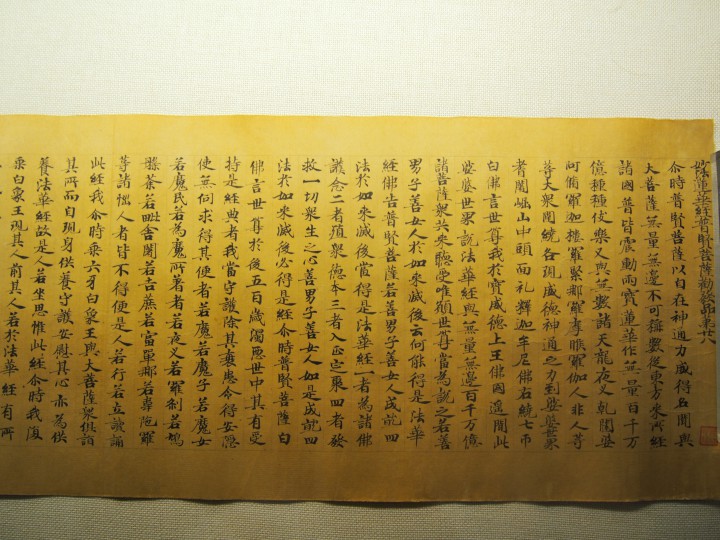 妙法蓮華經普賢菩薩勸發品第廿八
尒時普賢菩薩以自在神通力威德名聞與
大菩薩無量無邊不可稱數從東方來所經
諸國普皆震動雨寶蓮華作無量百千万
億種種伎樂又與無數諸天龍夜叉乾闥婆
阿脩羅迦樓羅緊那羅摩睺羅伽人非人等
大眾圍繞各現威德神通之力到娑婆世界
耆闍崛山中頭面礼釋迦牟尼佛右繞七帀
白佛言世尊我於寶威德上王佛國遥聞此
娑婆世界說法華經與無量無邊百千万億
諸菩薩眾共來聽受唯願世尊當為說之若善
男子善女人於如來滅後云何能得是法華
經佛告普賢菩薩若善男子善女人成就四
法於如來滅後當得是法華經一者為諸佛
護念二者殖眾德本三者入正定聚四者發
救一切眾生之心善男子善女人如是成就四
法於如來滅後必得是經尒時普賢菩薩白
佛言世尊於後五百歲濁惡世中其有受
持是經典者我當守護除其衰患令得安隱
使無伺求得其便者若魔若魔子若魔女
若魔民若為魔所著者若夜叉若羅剎若鳩
槃荼若毗舍闍若吉蔗若富單那若韋陀羅
等諸惱人者皆不得便是人若行若立讀誦
此經我尒時乘六牙白象王與大菩薩眾俱詣
其所而自現身供養守護安慰其心亦為供
養法華經故是人若坐思惟此經尒時我復
乘白象王現其人前其人若於法華經有所